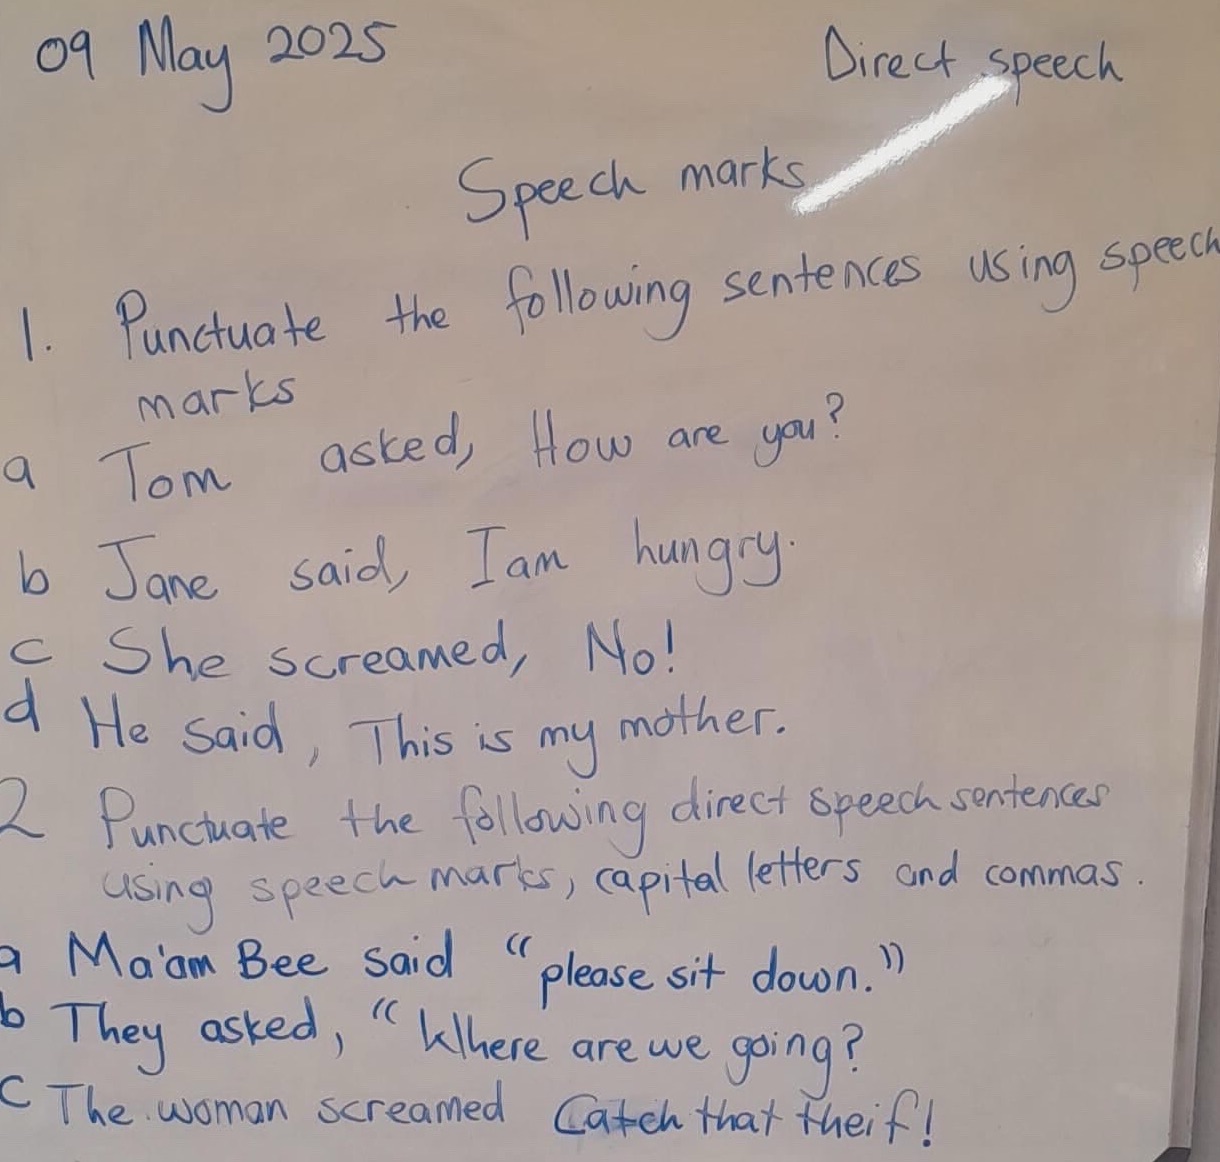 09 May 2025
Direct speech
Speech marks
1. Punctuate the following sentences using speech
marks
a Tom asked, How are you?
b Jane said, I am hungry.
c She screamed, No!
d He said, This is my mother.
2 Punctuate the following direct speech sentences
using speech marks, capital letters and commas.
a Ma'am Bee said “please sit down.”
b They asked, “Where are we going?
c The woman screamed Catch that theif!